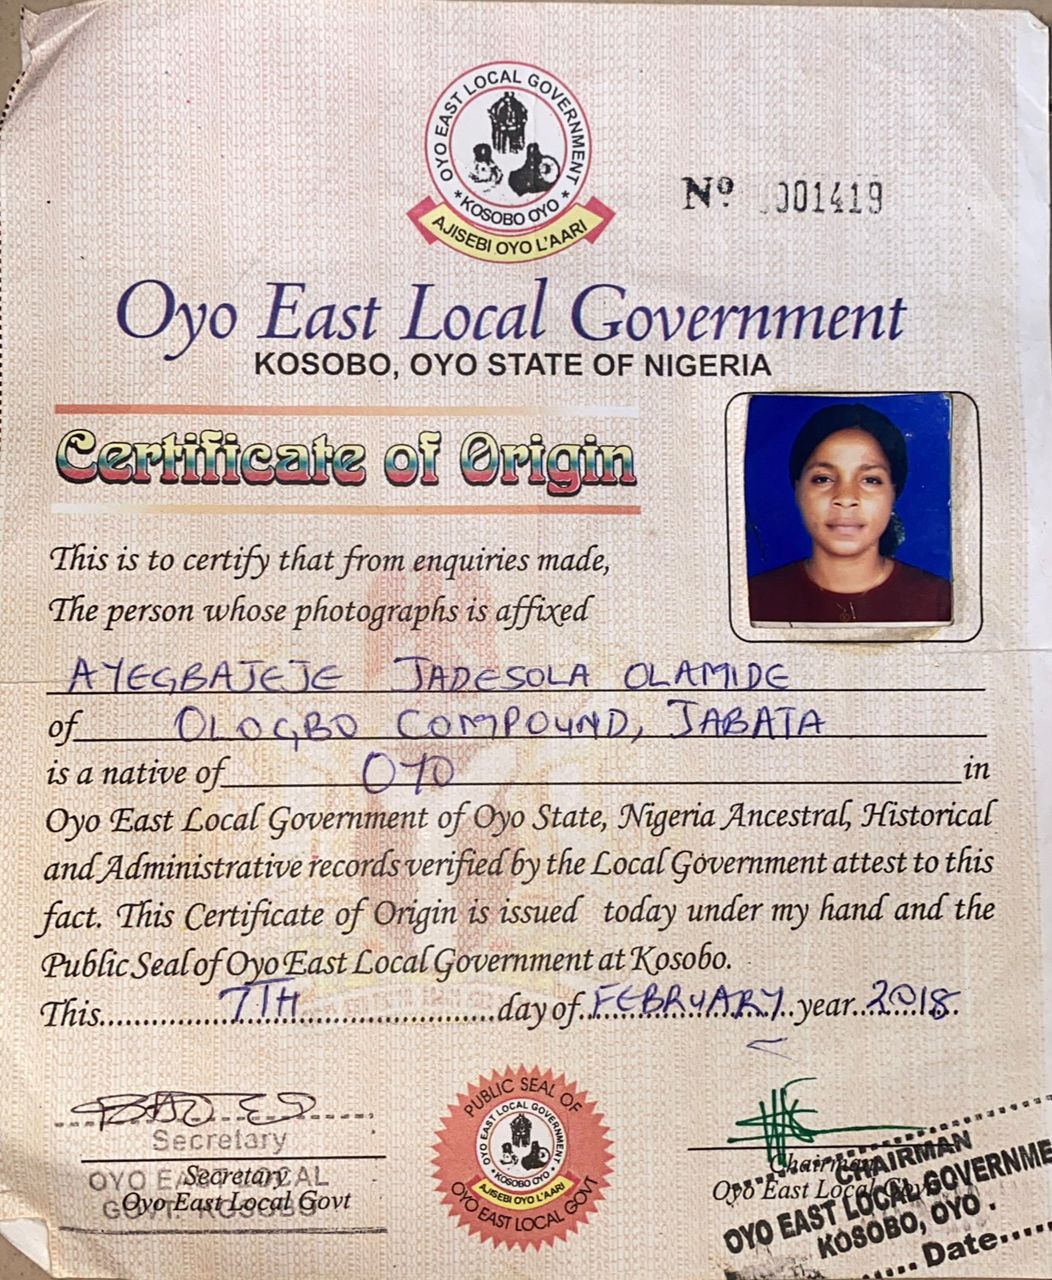 OYO EAST LOCAL GOVERNMENT
* KOSOBO OYO *
AJISEBI OYO L'AARI
Nº 001419
Oyo East Local Government
KOSOBO, OYO STATE OF NIGERIA
Certificate of Origin
This is to certify that from enquiries made,
The person whose photographs is affixed
AYEGBAJEJE JADESOLA OLAMIDE
of OLOGBO COMPOUND, JABATA
is a native of OYO in
Oyo East Local Government of Oyo State, Nigeria Ancestral, Historical
and Administrative records verified by the Local Government attest to this
fact. This Certificate of Origin is issued today under my hand and the
Public Seal of Oyo East Local Government at Kosobo.
This 7TH day of FEBRUARY year 2018.
Secretary
OYO EAST LOCAL
GOVT. KOSOBO
Secretary
Oyo East Local Govt
PUBLIC SEAL OF
OYO EAST LOCAL GOVERNMENT
* KOSOBO OYO *
AJISEBI OYO L'AARI
OYO EAST LOCAL GOVT
Chairman
Oyo East Local
CHAIRMAN
OYO EAST LOCAL GOVERNME
KOSOBO, OYO.
Date